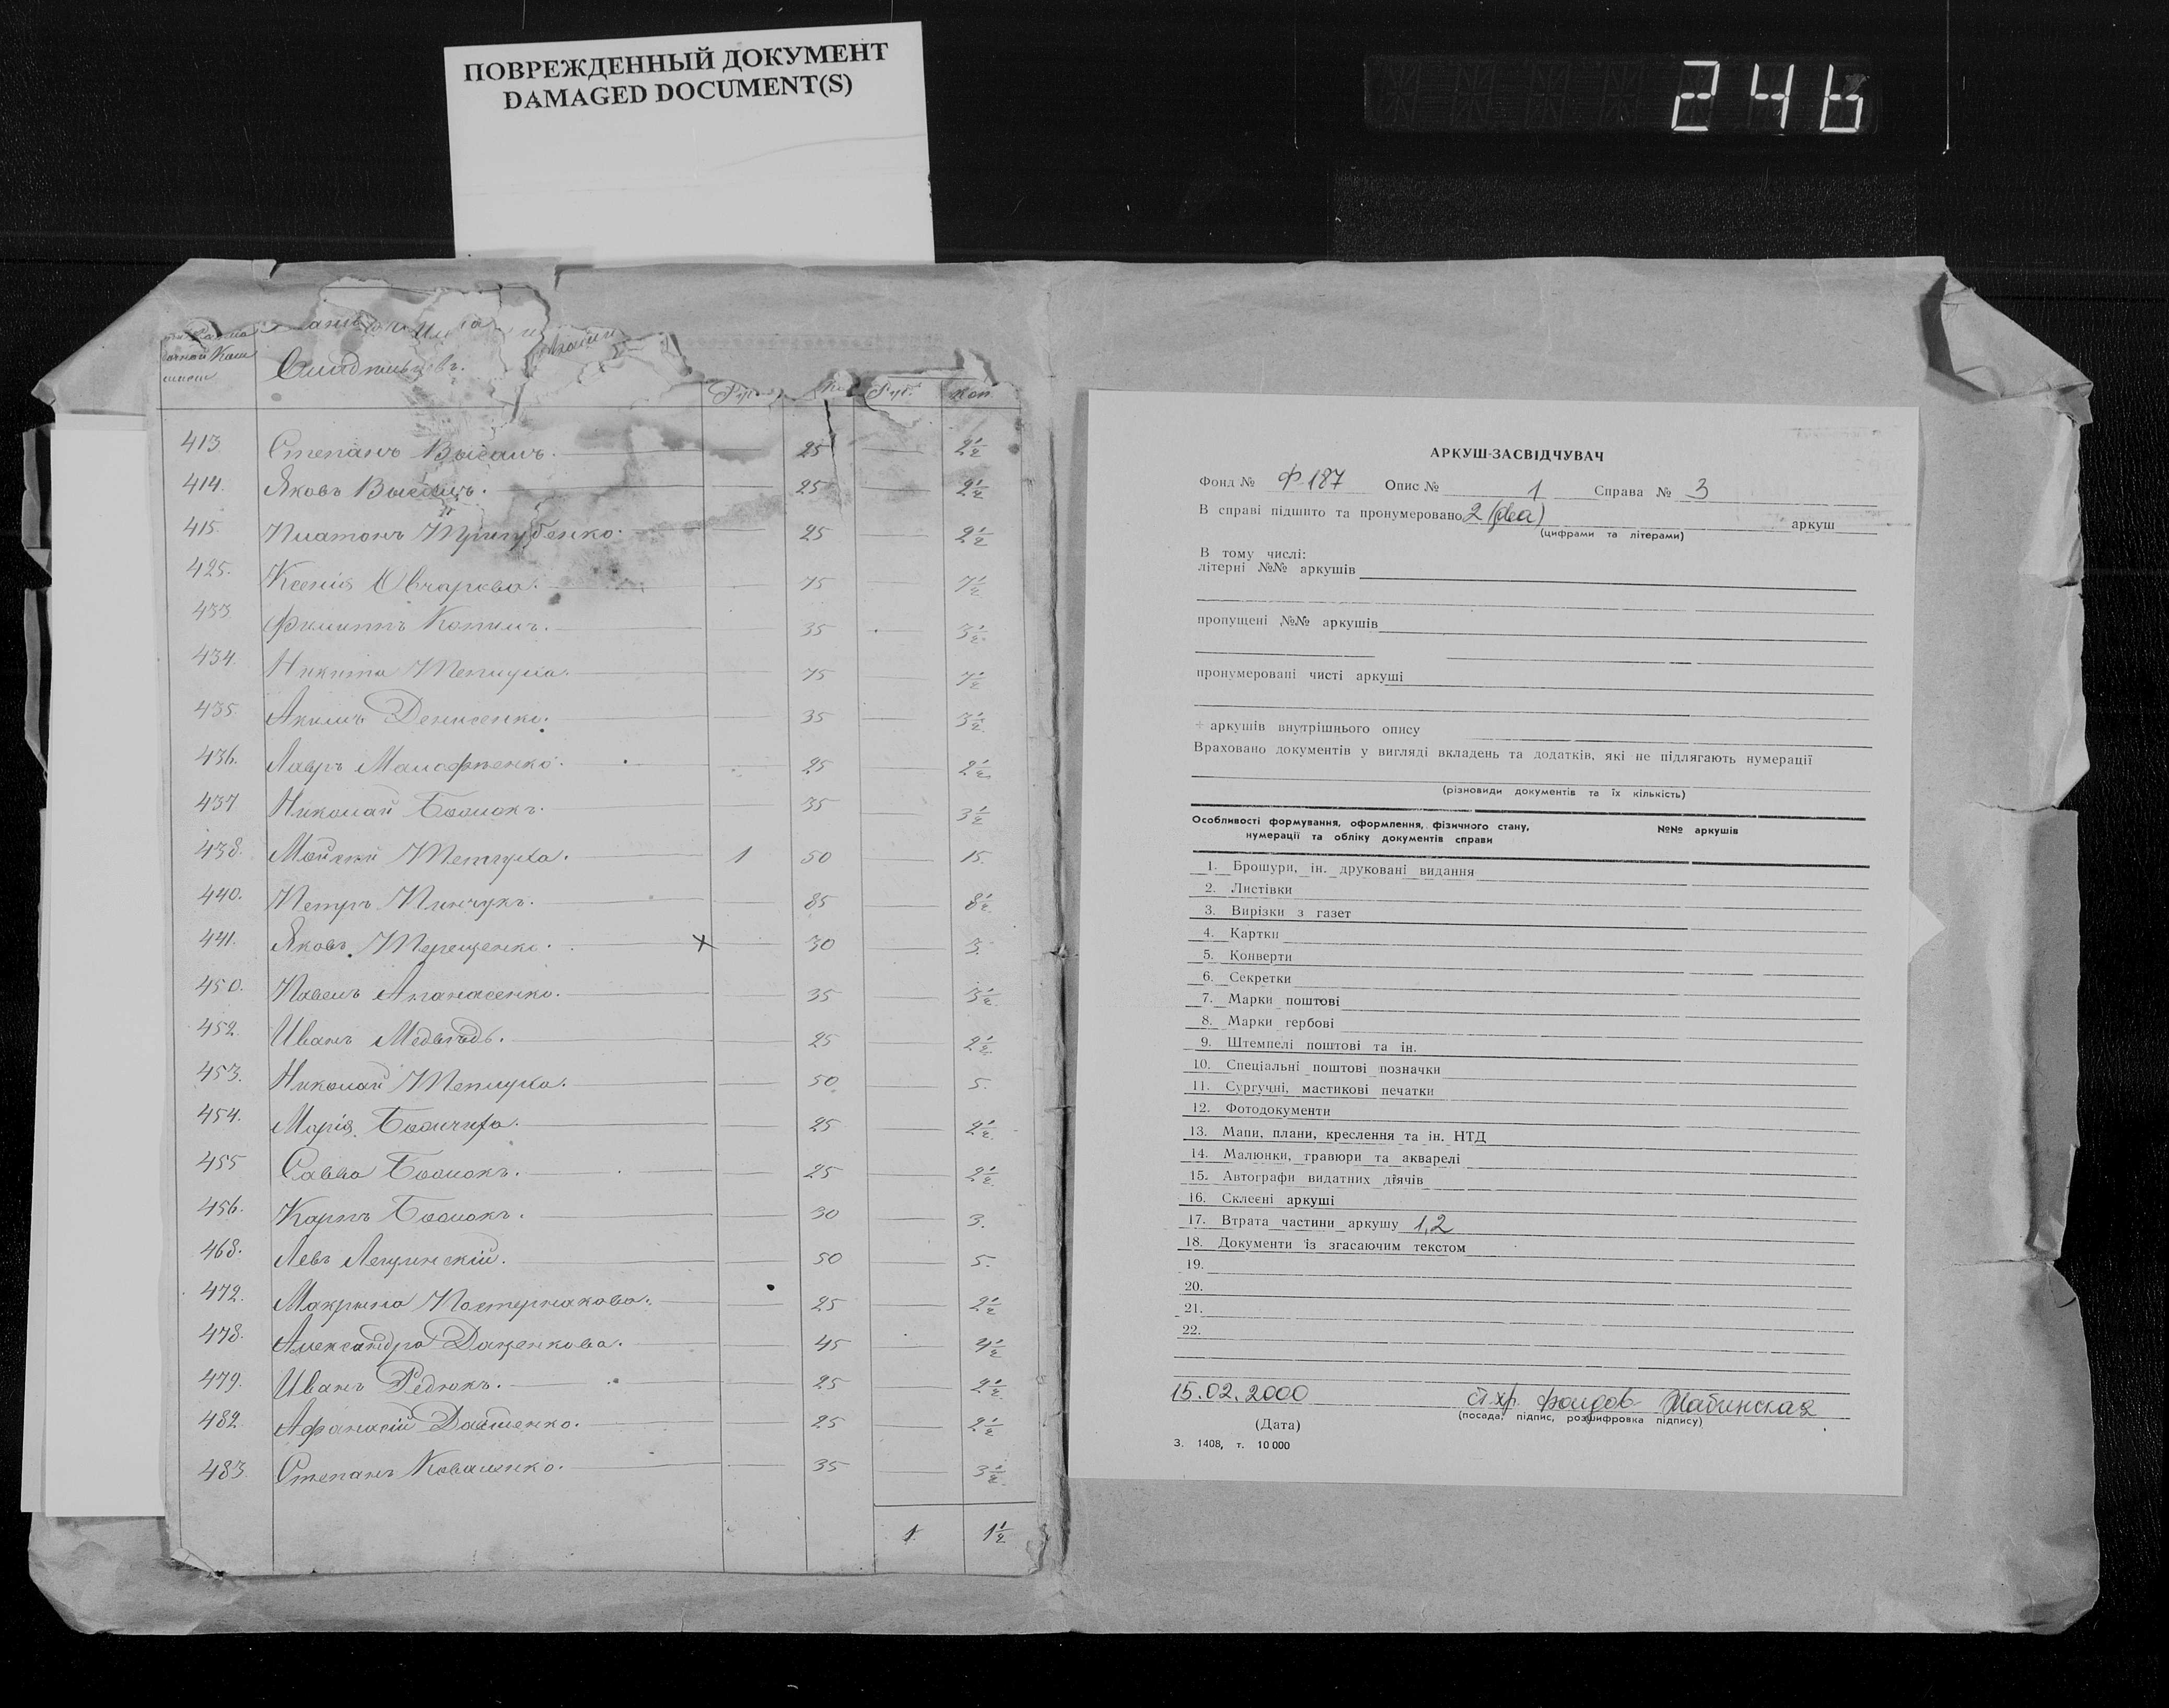 ПОВРЕЖДЕННЫЙ ДОКУМЕНТ
DAMAGED DOCUMENT(S)
246
Коп.
413. Степанъ 25 2½
414. Яковъ 25 2½
415. Платонъ 25 2½
425. Ксенія Овчарова. 75 7½
433. Филиппъ 35 3½
434. Никита Тетируха. 75 7½
435. Акимъ Денисенко. 35 3½
436. Лавръ 25 2½
437 Николай 35 3½
438. Мойсей 1 50 15.
440. Петръ Пинчукъ. 85 8½
441. Яковъ Терещенко. х 30 3.
450. Павелъ Апанасенко. 35 3½
452. Иванъ Медвѣдь. 25 2½
453. Николай 50 5.
454. Марія 25 2½
455 Савва 25 2½
456. Карпъ 30 3.
468. Левъ Лещинскій. 50 5.
472. Макрина Пастернакова. 25 2½
478. Александра Даценкова. 45 4½
479. Иванъ Редюкъ. 25 2½
482. Афанасій 25 2½
483. Степанъ Коваленко. 35 3½
1 1½
АРКУШ-ЗАСВІДЧУВАЧ
Фонд № Ф 187 Опис № 1 Справа № 3
В справі підшито та пронумеровано 2 (два) аркуш
(цифрами та літерами)
В тому числі:
літерні №№ аркушів
пропущені №№ аркушів
пронумеровані чисті аркуші
+ аркушів внутрішнього опису
Враховано документів у вигляді вкладень та додатків, які не підлягають нумерації
(різновиди документів та їх кількість)
Особливості формування, оформлення, фізичного стану, №№ аркушів
нумерації та обліку документів справи
1. Брошури, ін. друковані видання
2. Листівки
3. Вирізки з газет
4. Картки
5. Конверти
6. Секретки
7. Марки поштові
8. Марки гербові
9. Штемпелі поштові та ін.
10. Спеціальні поштові позначки
11. Сургучні, мастикові печатки
12. Фотодокументи
13. Мапи, плани, креслення та ін. НТД
14. Малюнки, гравюри та акварелі
15. Автографи видатних діячів
16. Склеєні аркуші
17. Втрата частини аркушу 1,2
18. Документи із згасаючим текстом
19.
20.
21.
22.
15.02.2000 ст. хр. фондов
(Дата) (посада, підпис, розшифровка підпису)
З. 1408, т. 10 000